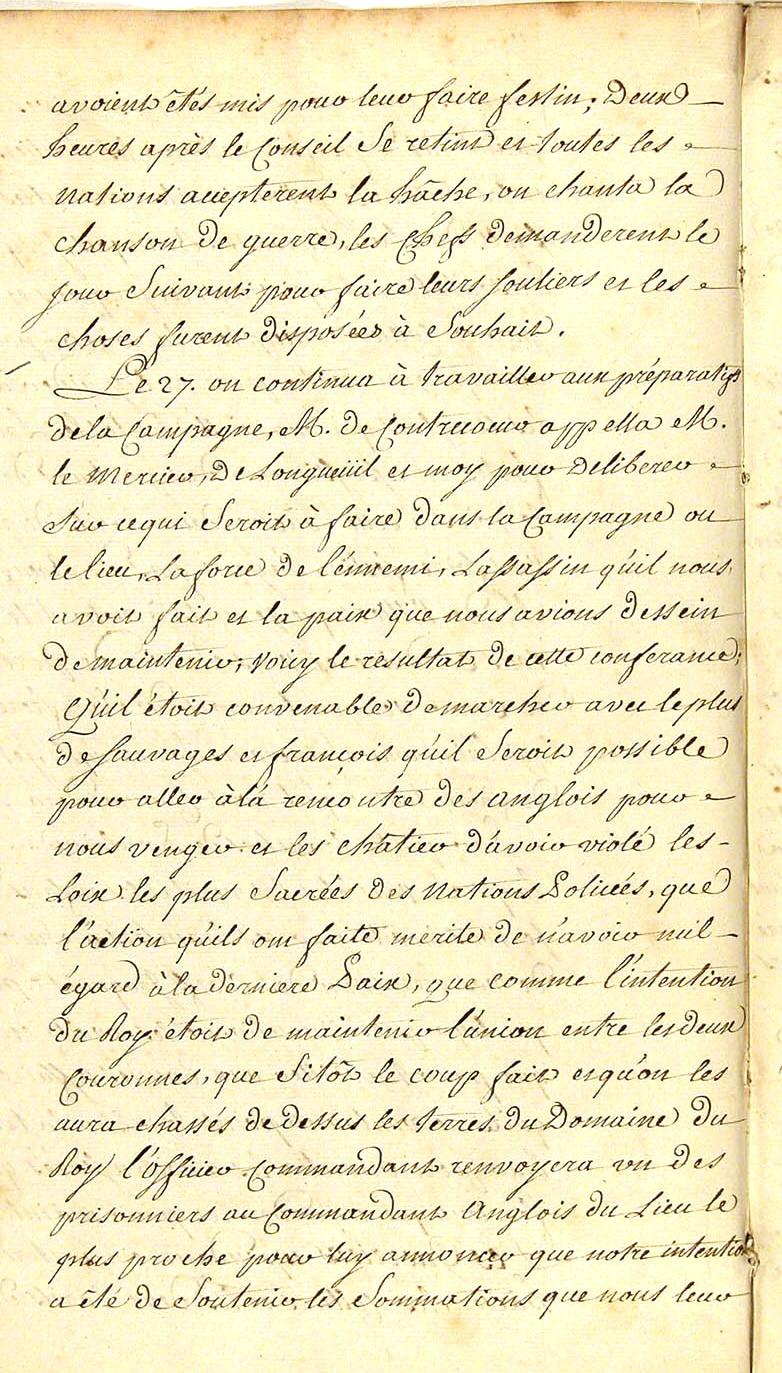 avoient étés mis pour leur faire festin; Deux
heures après le Conseil Se retint et toutes les
nations accepterent la hâche, on chanta la
chanson de guerre, les Chefs demanderent le
jour Suivant pour faire leurs souliers et les
choses furent disposées à Souhait.
Le 27. on continua à travailler aux préparatifs
de la Campagne, M. de Contrecoeur appella M.
le Mercier, De Longueüil et moy pour Deliberer
Sur ce qui Seroit à faire dans la Campagne ou
le lieu, La force de l'énnemi, Lassassin qu'il nous
avoit fait et la paix que nous avions dessein
de maintenir; voicy le resultat de cette conferance;
Qu'il étoit convenable de marcher avec le plus
de Sauvages et françois qu'il Seroit possible
pour aller à la rencontre des anglois pour
nous venger et les châtier d'avoir violé les
Loix les plus Sacrées des Nations Policées, que
l'action qu'ils ont faite merite de n'avoir nul
égard à la derniere Paix, que comme l'intention
du Roy étoit de maintenir l'únion entre les deux
Couronnes, que Sitôt le coup fait et qu'on les
aura chassés de dessus les terres du Domaine du
Roy l'officier Commandant renvoyera un des
prisonniers au Commandant Anglois du Lieu le
plus proche pour luy annoncer que notre intention
a été de Soutenir les Sommations que nous leur